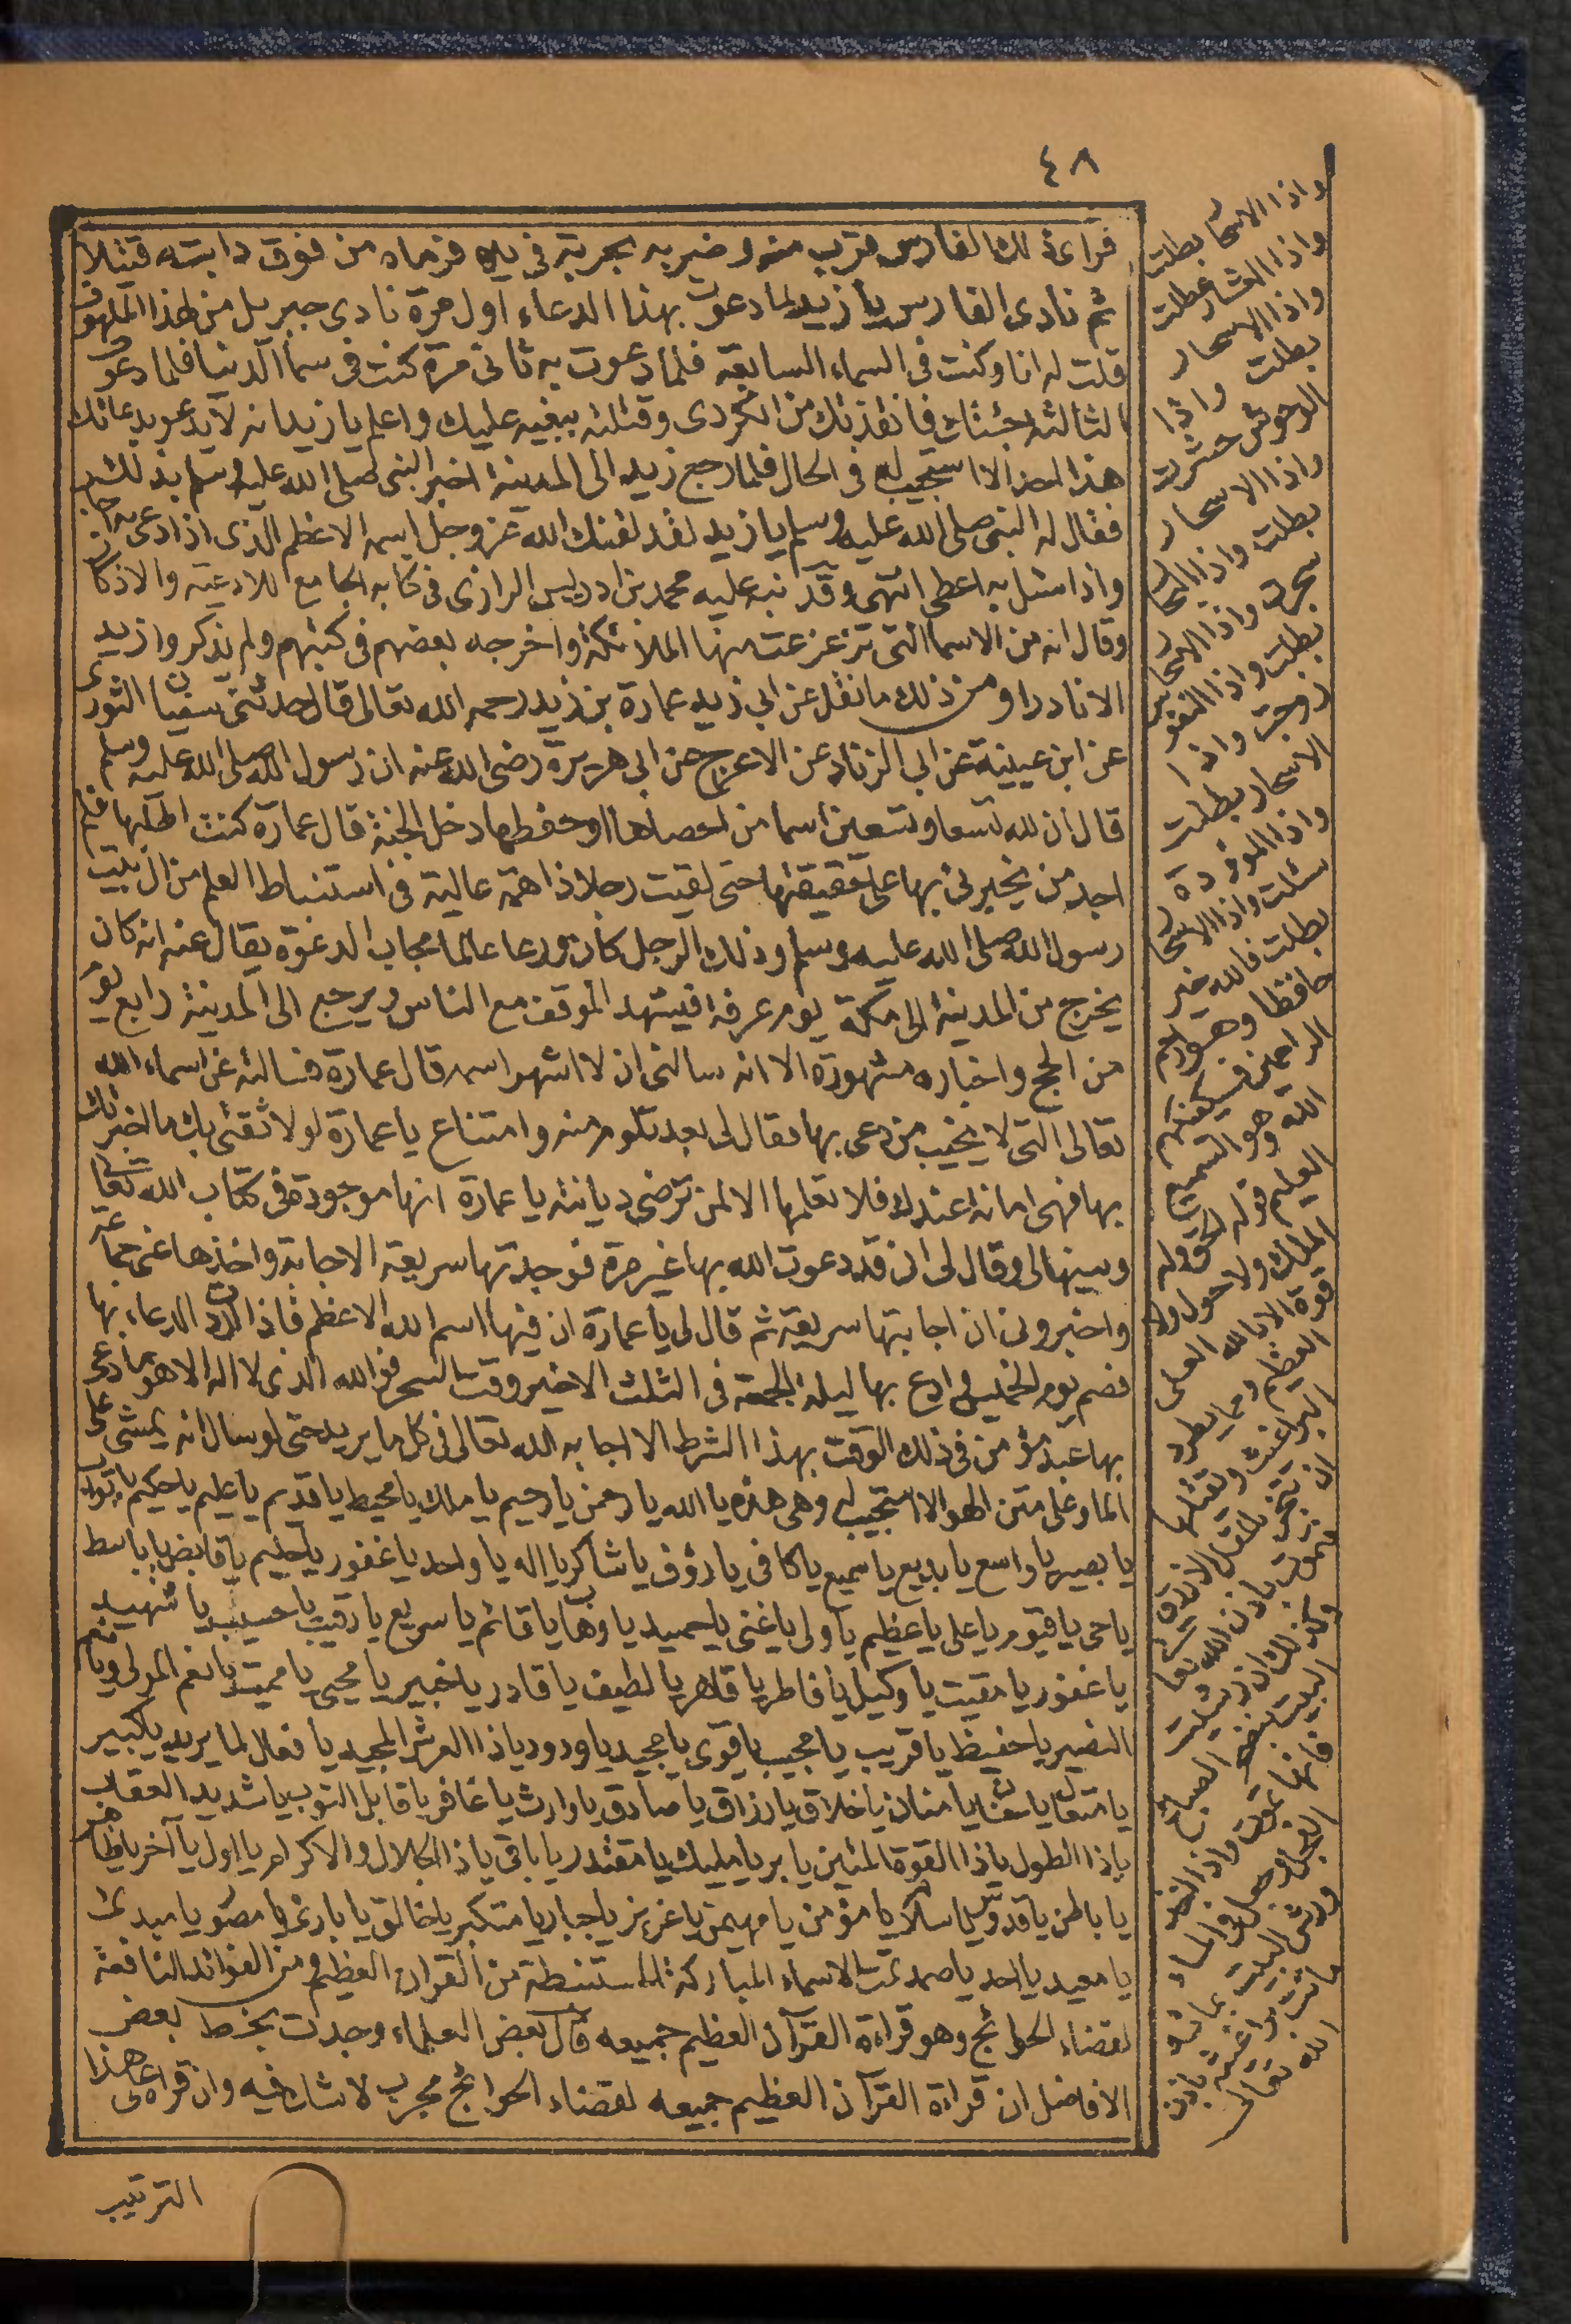 ٤٨
قراءة ذلك الفارس فقرب منه وضربه بحربة في يده فرماه من فوق دابته قتيلا
ثم نادى الفارس يا زيد لما دعوت بهذا الدعاء اول مرة نادى جبريل من لهذا الملهوف
قلت له انا وكنت في السماء السابعة فلما دعوت به ثاني مرة كنت في سما الدنيا فلما دعوت
الثالثة جئتك فانقذتك من الكردي وقتلته ببغيه عليك واعلم يا زيد انه لا يدعو بدعائك
هذا احد الا استجيب له في الحال فلما رجع زيد الى المدينة اخبر النبي صلى الله عليه وسلم بذلك
فقال له النبي صلى الله عليه وسلم يا زيد لقد لقنك الله عز وجل اسمه الاعظم الذي اذا دعي به اجاب
واذا سئل به اعطى انتهى وقد نبه عليه محمد بن ادريس الرازي في كتابه الجامع للادعية والاذكار
وقال انه من الاسما التي تزعزعت منها الملائكة واخرجه بعضهم في كتبهم ولم يذكروا زيد
الا نادرا ومن ذلك ما نقل عن ابي زيد عمارة بن زيد رحمه الله تعالى قال حدثني سفيان الثوري
عن ابن عيينة عن ابي الزناد عن الاعرج عن ابي هريرة رضي الله عنه ان رسول الله صلى الله عليه وسلم
قال ان لله تسعا وتسعين اسما من احصاها او حفظها دخل الجنة قال عمارة كنت اطلبها فلم
اجد من يخبرني بها على حقيقتها حتى لقيت رجلا ذا همة عالية في استنباط العلم من ال بيت
رسول الله صلى الله عليه وسلم وذلك الرجل كان ورعا عالما مجاب الدعوة يقال عنه انه كان
يخرج من المدينة الى مكة يوم عرفة فيشهد الموقف مع الناس ويرجع الى المدينة رابع يوم
من الحج واخباره مشهورة الا انه سالني ان لا اشهر اسمه قال عمارة فسالته عن اسماء الله
تعالى التي لا يخيب من دعي بها فقال لي بعد تلوم منه وامتناع يا عمارة لولا ثقتي بك ما اخبرتك
بها فهي امانة عندك فلا تعلمها الا لمن ترضى ديانته يا عمارة انها موجودة في كتاب الله تعالى
وبينها لي وقال لي اني قد دعوت الله بها غير مرة فوجدتها سريعة الاجابة واخذها عني جماعة
واخبروني ان اجابتها سريعة ثم قال لي يا عمارة ان فيها اسم الله الاعظم فاذا اردت الدعاء بها
فصم يوم الخميس وادع بها ليلة الجمعة في الثلث الاخير وقت السحر فوالله الذي لا اله الا هو ما دعى
بها عبد مؤمن في ذلك الوقت بهذا الشرط الا اجابه الله تعالى في كل ما يريد حتى لو سال انه يمشي على
الماء وعلى متن الهوا لا استجيب له وهي هذه يا الله يا رحمن يا رحيم يا ملك يا محيط يا قديم يا عليم يا حكيم يا تواب
يا بصير يا واسع يا بديع يا سميع يا كافي يا رؤف يا شاكر يا اله يا واحد يا غفور يا حليم يا قابض يا باسط
يا حي يا قيوم يا علي يا عظيم يا ولي يا غني يا حميد يا وهاب يا قائم يا سريع يا رقيب يا حسيب يا شهيد
يا غفور يا مقيت يا وكيل يا فاطر يا قاهر يا لطيف يا قادر يا خبير يا محيي يا مميت يا نعم المولى ويا نعم
النصير يا حفيظ يا قريب يا مجيب يا قوي يا مجيد يا ودود يا ذا العرش المجيد يا فعال لما يريد يا كبير
يا متعال يا حنان يا منان يا خلاق يا رزاق يا صادق يا وارث يا غافر يا قابل التوب يا شديد العقاب
يا ذا الطول يا ذا القوة المتين يا بر يا مليك يا مقتدر يا باقي يا ذا الجلال والاكرام يا اول يا آخر يا ظاهر
يا باطن يا قدوس يا سلام يا مؤمن يا مهيمن يا عزيز يا جبار يا متكبر يا خالق يا بارئ يا مصور يا مبدئ
يا معيد يا احد يا صمد تمت الاسماء المباركة المستنبطة من القرآن العظيم ومن الفوائد النافعة
لقضاء الحوائج وهو قراءة القرآن العظيم جميعه قال بعض العلماء وجدت بخط بعض
الافاضل ان قراءة القرآن العظيم جميعه لقضاء الحوائج مجرب لا شك فيه وان قراه على هذا
الترتيب
واذا الاسحار بطلت
واذا العشار عطلت
واذا الاسحار
بطلت واذا
الوحوش حشرت
واذا الاسحار
بطلت واذا البحار
سجرت واذا الاسحار
بطلت واذا النفوس
زوجت واذا
الاسحار بطلت
واذا الموؤدة
سئلت واذا الاسحار
بطلت فالله خير
حافظا وهو ارحم
الراحمين فسيكفيكهم
الله وهو السميع
العليم قوله الحق وله
الملك ولا حول ولا
قوة الا بالله العلي
العظيم ومما يطرد
البراغيث ويقتلها
ان تبخر
تموت باذن الله تعالى
وكذلك ان رشيت
البيت
فانها تموت واذا
ورش البيت بمائه
ماتت براغيثه باذن
الله تعالى